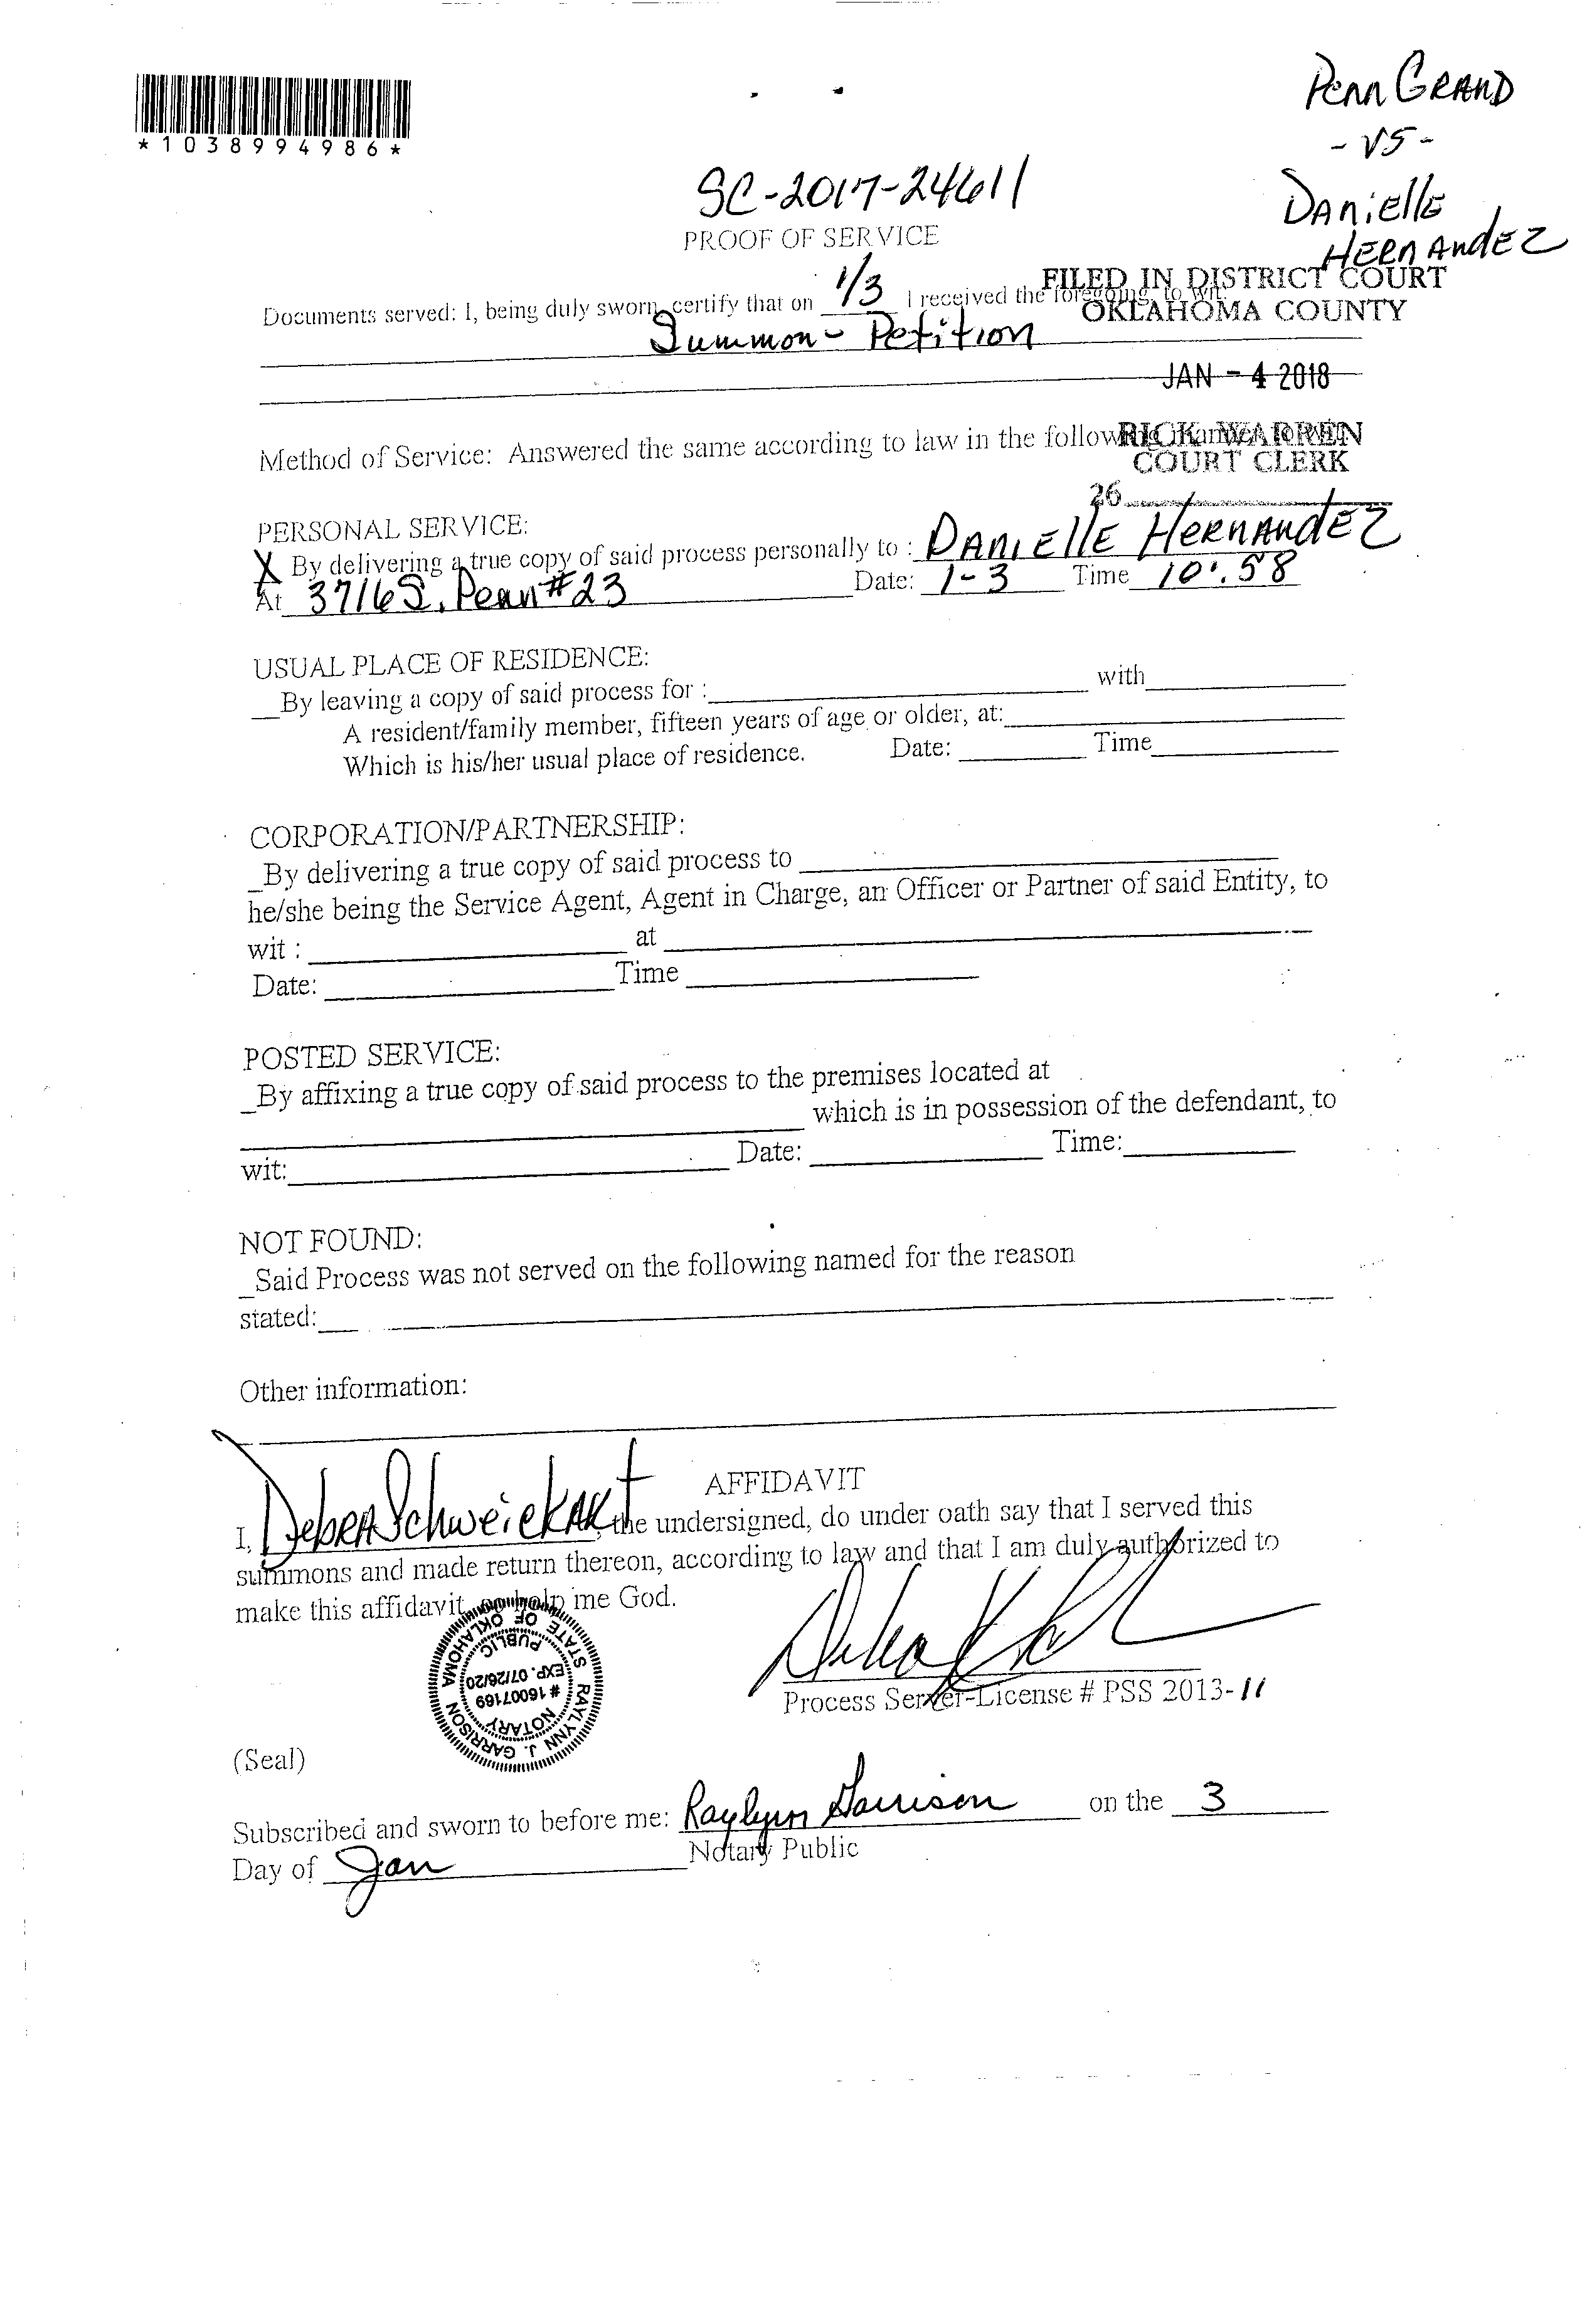 Penn Grand
- VS -
Danielle
Hernandez
*1038994986*
SC-2017-24611
PROOF OF SERVICE
FILED IN DISTRICT COURT
OKLAHOMA COUNTY
Documents served: I, being duly sworn, certify that on 1/3 I received the foregoing, to wit:
Summon - Petition
JAN - 4 2018
Method of Service: Answered the same according to law in the following
RICK WARREN
COURT CLERK
26
PERSONAL SERVICE:
X By delivering a true copy of said process personally to : Danielle Hernandez
At 3716 S. Penn #23 Date: 1-3 Time 10:58
USUAL PLACE OF RESIDENCE:
_By leaving a copy of said process for : with
A resident/family member, fifteen years of age or older, at:
Which is his/her usual place of residence. Date: Time
CORPORATION/PARTNERSHIP:
_By delivering a true copy of said process to
he/she being the Service Agent, Agent in Charge, an Officer or Partner of said Entity, to
wit : at
Date: Time
POSTED SERVICE:
_By affixing a true copy of said process to the premises located at
which is in possession of the defendant, to
wit: Date: Time:
NOT FOUND:
_Said Process was not served on the following named for the reason
stated:
Other information:
AFFIDAVIT
I, Debra Schweickart, the undersigned, do under oath say that I served this
summons and made return thereon, according to law and that I am duly authorized to
make this affidavit, so help me God.
RAYLYNN J. GARRISON
STATE OF OKLAHOMA
NOTARY
# 16007169
EXP. 07/26/20
PUBLIC
Process Server-License # PSS 2013-11
(Seal)
Subscribed and sworn to before me: Raylynn Garrison on the 3
Notary Public
Day of Jan